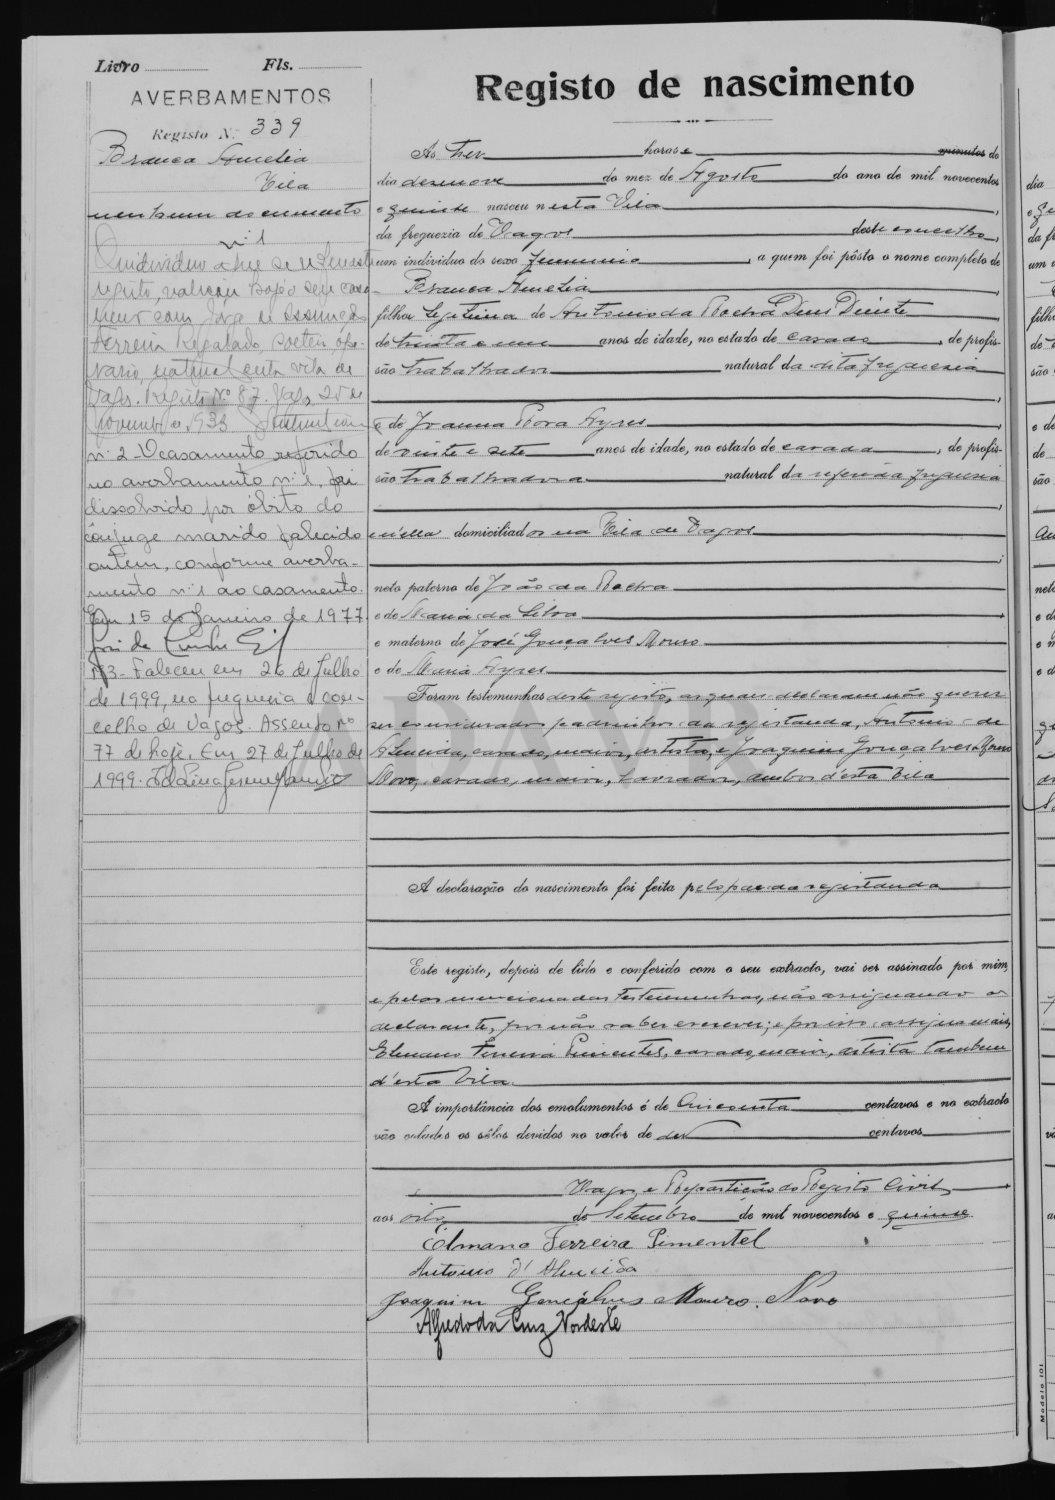 Livro Fls.
AVERBAMENTOS
Registo N.º 339
Branca Amelia
Vila
nenhum documento
n.º 1
O individuo a que se refere este
registo, realizou hoje o seu casa-
mento com Jorge da Assunção
Ferreira Regalado, solteiro, ope-
rario, natural desta vila de
Vagos. Registo Nº 87. Vagos, 25 de
Novembro 1933.
n.º 2 - O casamento referido
no averbamento n.º 1, foi
dissolvido por óbito do
cônjuge marido falecido
ontem, conforme averba-
mento n.º 1 ao casamento.
Em 15 de Janeiro de 1977.
Nº 3 - Faleceu em 26 de Julho
de 1999, na freguesia e con-
celho de Vagos. Assento nº
77 de hoje. Em 27 de Julho de
1999.
Registo de nascimento
As tres horas e minutos do
dia desenove do mez de Agosto do ano de mil novecentos
e quinse nasceu nesta Vila
da freguezia de Vagos deste concelho,
um individuo do sexo femenino, a quem foi pôsto o nome completo de
Branca Amelia
filha legitima de Antonio da Rocha Deus Dinite
de trinta e um anos de idade, no estado de casado, de profis-
são trabalhador natural da dita freguesia
e de Joanna Rosa Ayres
de vinte e sete anos de idade, no estado de casada, de profis-
são trabalhadora natural da referida freguesia
e n'ella domiciliados na Vila de Vagos
neto paterno de João da Rocha
e de Maria da Silva
e materno de José Gonçalves Mouro
e de Maria Ayres
Foram testemunhas deste registo, as quaes declararam não querer
ser considerados padrinhos da registanda, Antonio de
Almeida, casado, maior, artista, e Joaquim Gonçalves Mouro
Novo, casado, maior, lavrador, ambos d'esta Vila
A declaração do nascimento foi feita pelo pae da registanda
Este registo, depois de lido e conferido com o seu extracto, vai ser assinado por mim,
e pelas mencionadas testemunhas, não assignando o
declarante, por não saber escrever; e por isso assigna mais,
Elmano Ferreira Pimentel, casado, maior, artista tambem
d'esta Vila.
A importância dos emolumentos é de cincoenta centavos e no extracto
vão colados os sêlos devidos no valor de dez centavos
Vagos e Repartição do Registo Civil,
aos oito de Setembro de mil novecentos e quinse
Elmano Ferreira Pimentel
Antonio d'Almeida
Joaquim Gonçalves Mouro Novo
Alfredo da Cruz Nordeste
Modelo 101